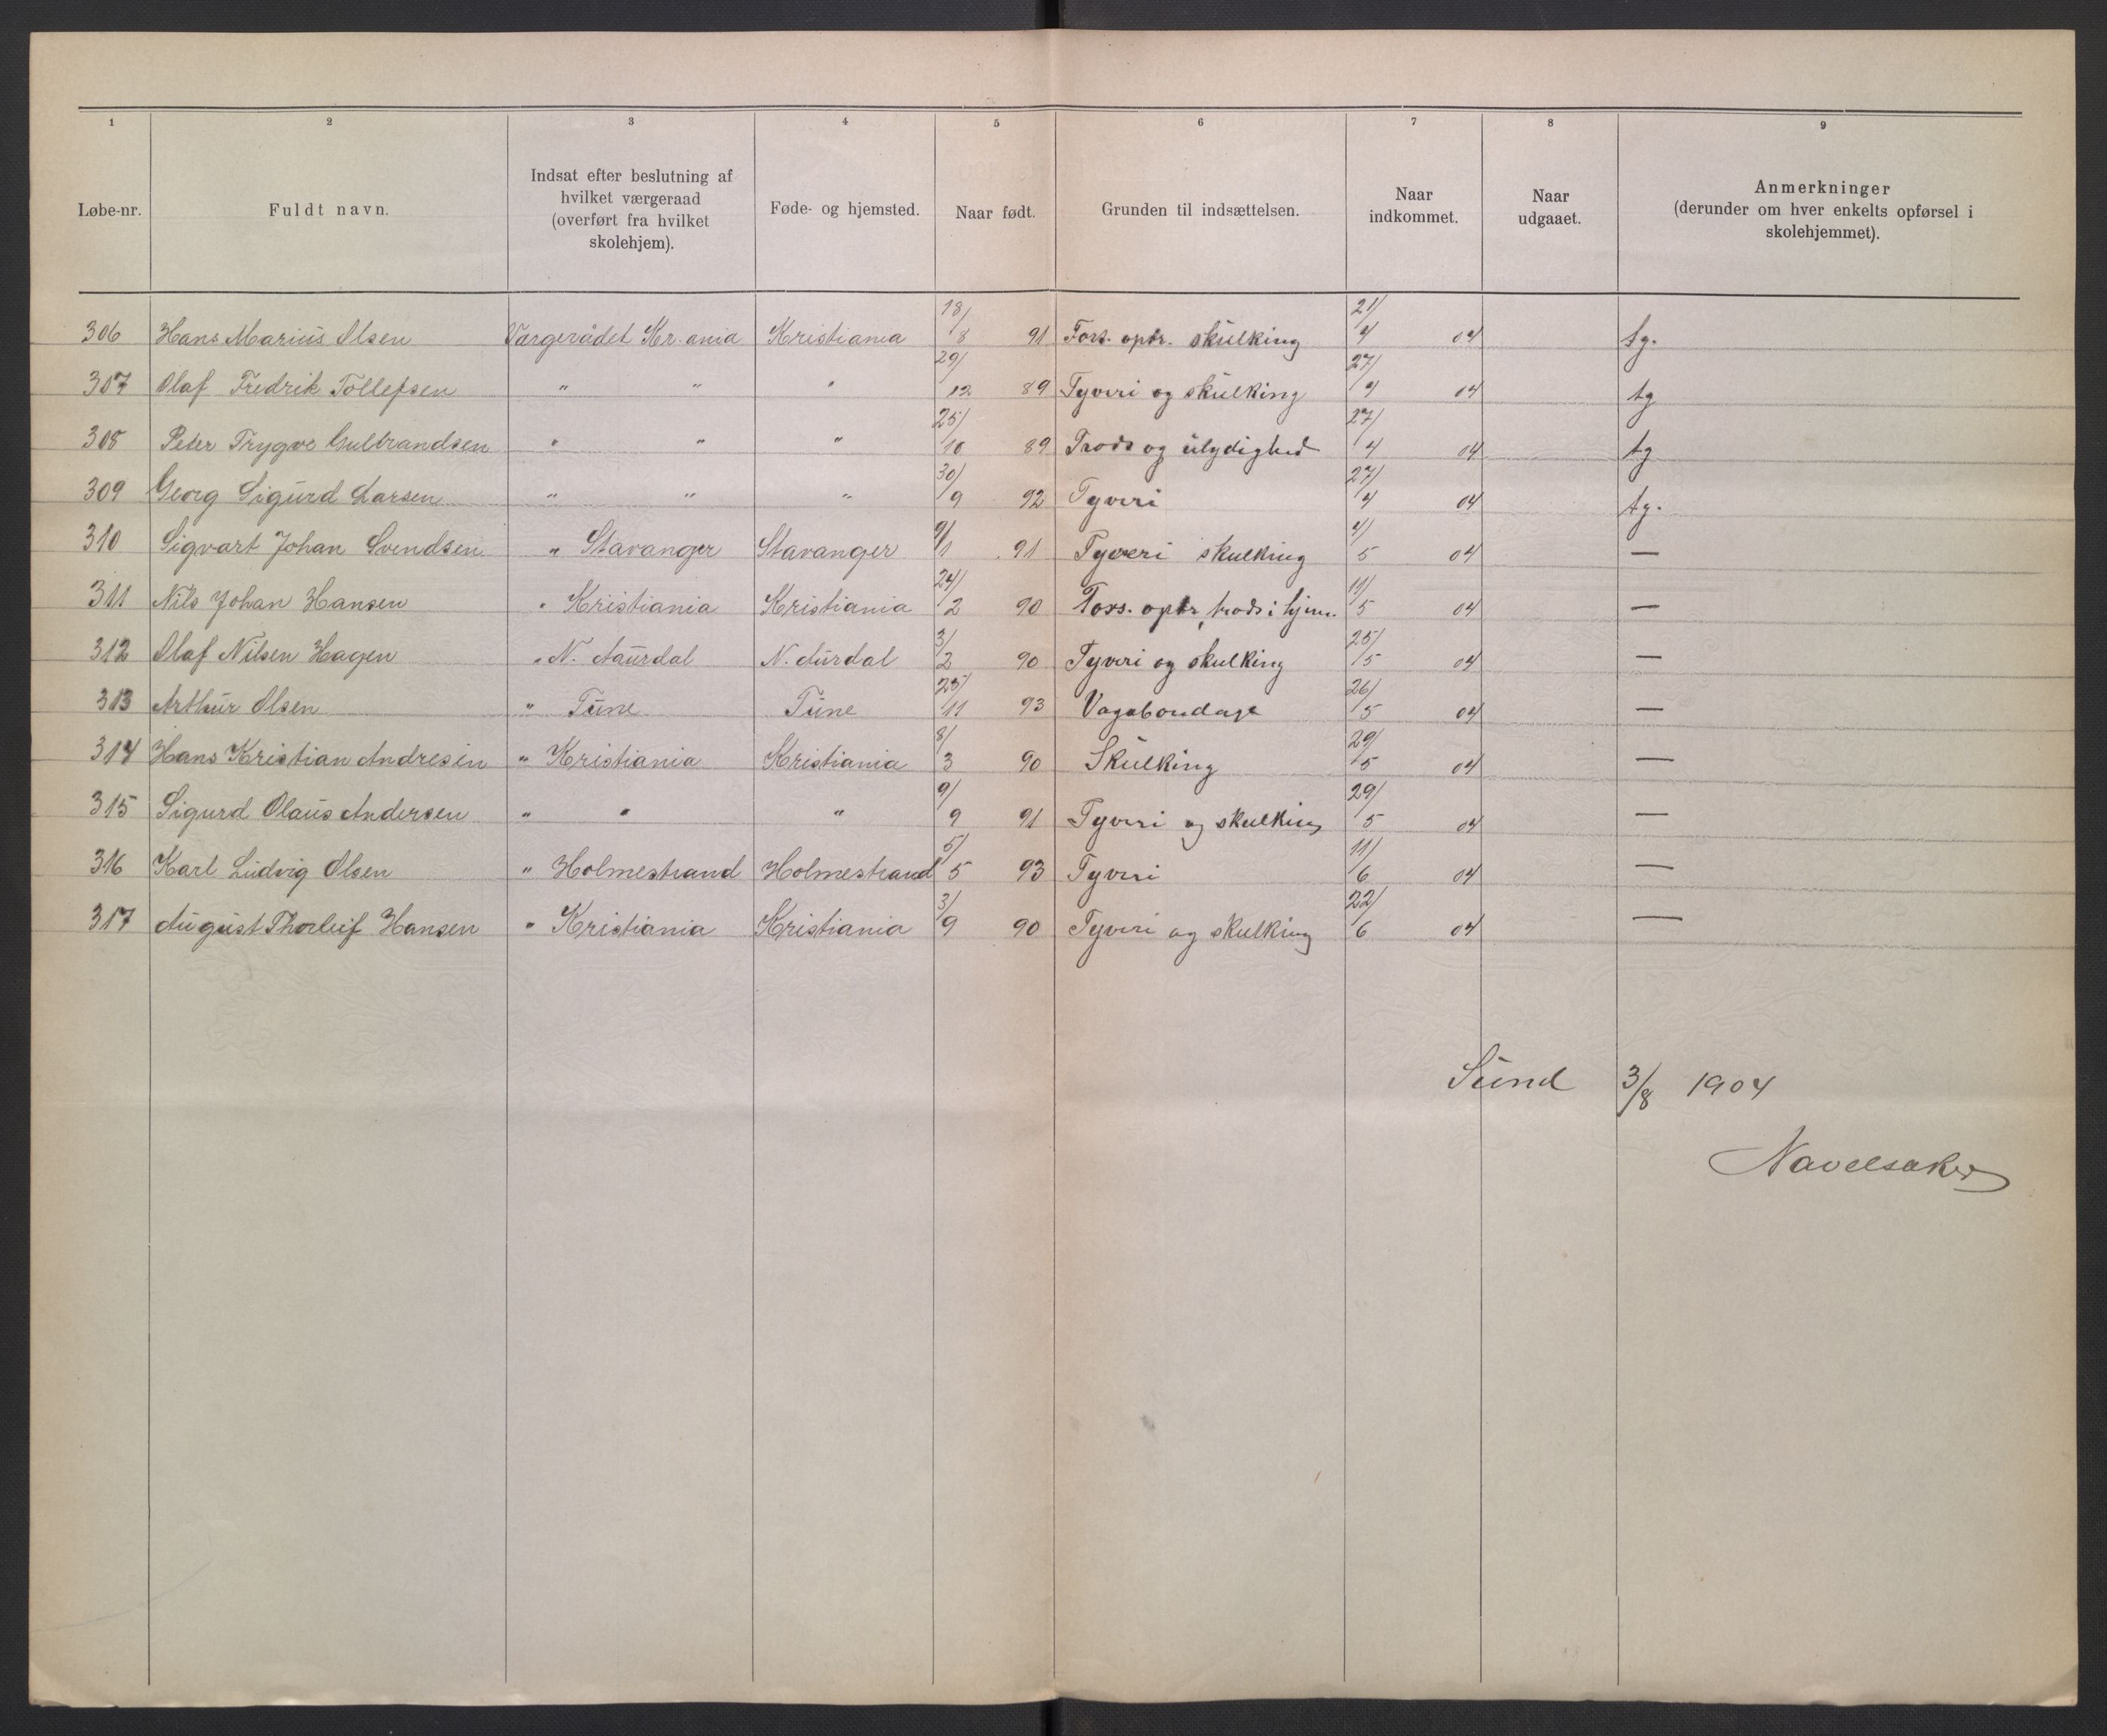 1 2 3 4 5 6 7 8 9
Løbe-nr. Fuldt navn. Indsat efter beslutning af hvilket værgeraad (overført fra hvilket skolehjem). Føde- og hjemsted. Naar født. Grunden til indsættelsen. Naar indkommet. Naar udgaaet. Anmerkninger (derunder om hver enkelts opførsel i skolehjemmet).
306 Hans Marius Olsen Værgerådet Kr.ania Kristiania 18/8 91 Fors. optr. skulking 21/4 04 tg.
307 Olaf Fredrik Tollefsen " " " 29/12 89 Tyveri og skulking 27/4 04 tg
308 Peter Trygve Gulbrandsen " " " 25/10 89 Trods og ulydighed 27/4 04 tg
309 Georg Sigurd Larsen " " " 30/9 92 Tyveri 27/4 04 tg.
310 Sigvart Johan Svendsen " Stavanger Stavanger 9/1 91 Tyveri skulking 4/5 04 —
311 Nils Johan Hansen " Kristiania Kristiania 24/2 90 Fors. optr, trods i hjem. 19/5 04 —
312 Olaf Nilsen Hagen " N. Aurdal N. Aurdal 3/2 90 Tyveri og skulking 25/5 04 —
313 Arthur Olsen " Tune Tune 25/11 93 Vagabondage 26/5 04 —
314 Hans Kristian Andresen " Kristiania Kristiania 8/3 90 Skulking 29/5 04 —
315 Sigurd Olaus Andersen " " " 9/9 91 Tyveri og skulking 29/5 04 —
316 Karl Ludvig Olsen " Holmestrand Holmestrand 5/5 93 Tyveri 11/6 04 —
317 August Thorleif Hansen " Kristiania Kristiania 3/9 90 Tyveri og skulking 22/6 04 —
Sund 3/8 1904
Navelsaker